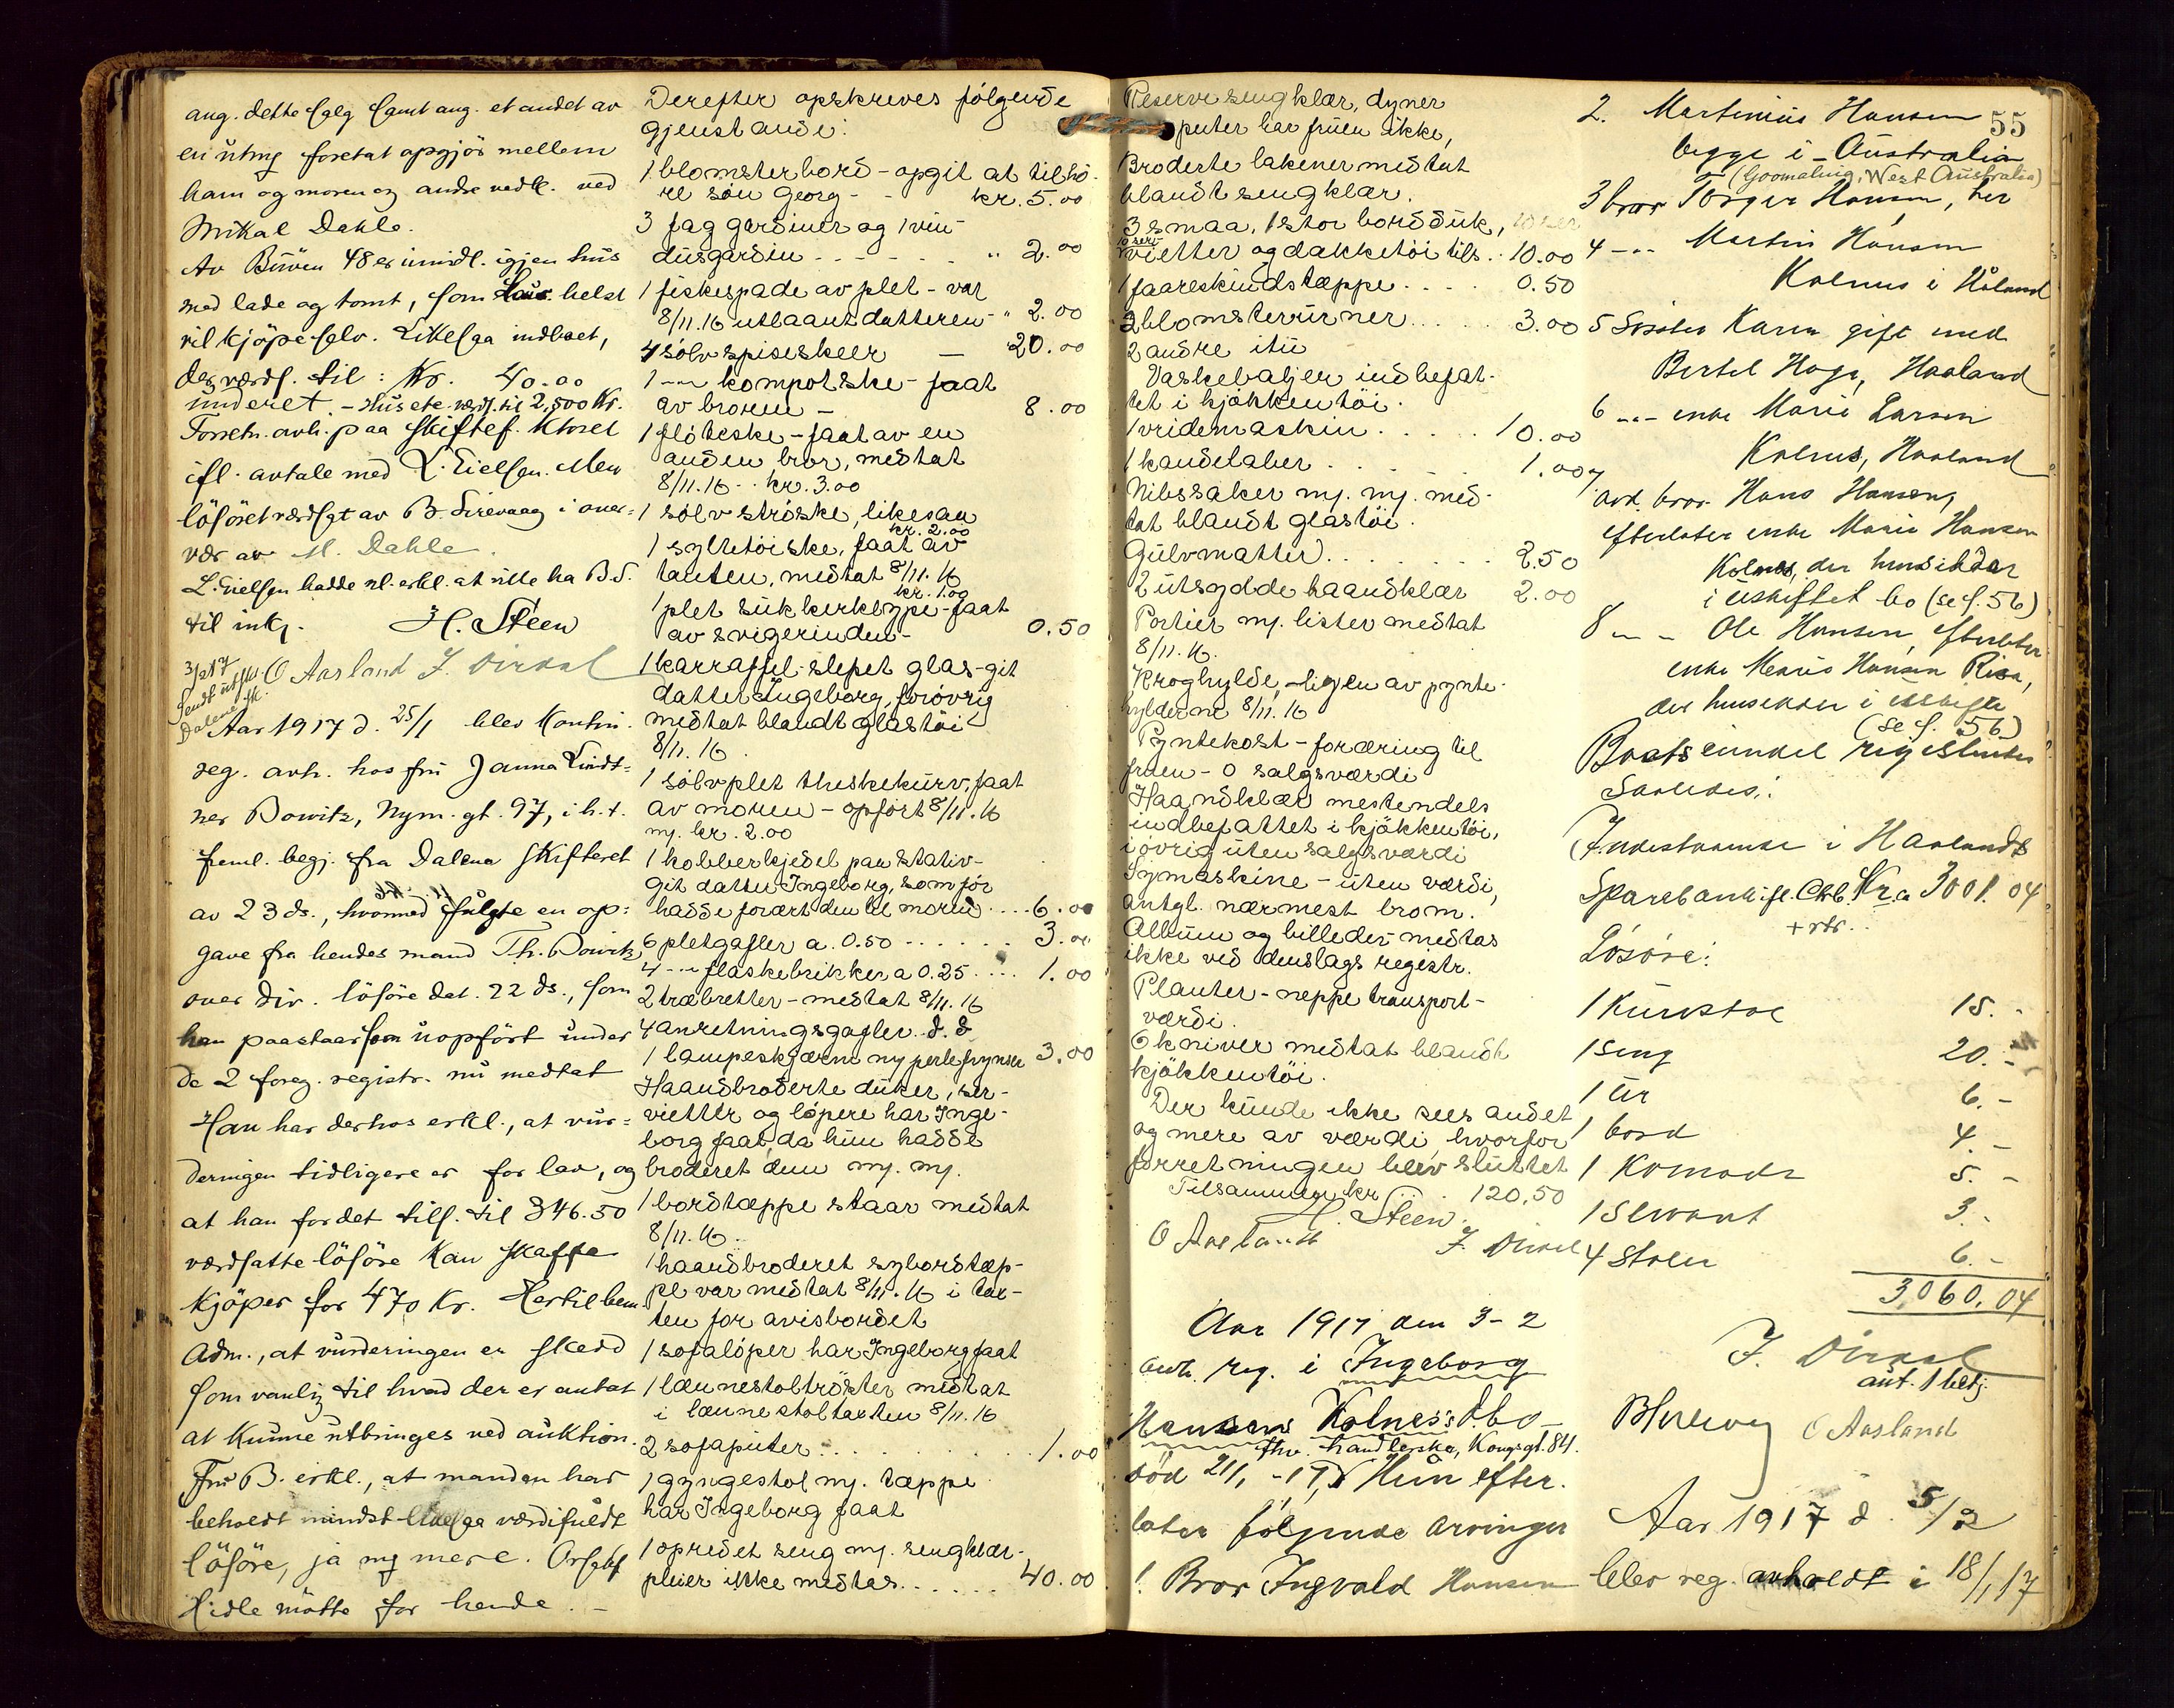 ang. dette salg samt ang. et andet av
en utmg foretat opgjør mellem
ham og moren og andre vedk. ved
Mikal Dahle.
Av Bruven 48 er imidl. igjen hus
med lade og tomt, som helst
vil kjøpe selv. Likesaa indboet,
der værds. til: Kr. 40.00
underet. - Hus etc. værds. til 2,500 Kr.
Forretn. avh. paa Skiftef. Ktoret
ifl. avtale med L. Eielsen. Men
løsøret værdsat av B. Sirevaag i over-
vær av M. Dahle.
L. Eielsen hadde nl. erkl. at ville ha B.S.
til intg. H. Steen
O Aasland J. Dirdal
3/2 17
Sendt utskr.
Dalene sk.
Aar 1917 d. 25/1 blev Kontin.
reg. avh. hos fru Janna Lindt-
ner Bowitz, Nym. gt. 97, i h. t.
freml. begj. fra Dalena Skifteret
av 23 ds., hvormed fulgte en op-
gave fra hendes mand Th. Bowitz
over div. løsøre dat. 22 ds., som
han paastaar som uopført under
de 2 foreg. registr. nu medtat
Han har derhos erkl., at vur-
deringen tidligere er for lav, og
at han for det tils. til 346.50
værdsatte løsøre Kan skaffe
Kjøper for 470 Kr. Hertil bem.
Adm., at vurderingen er skedd
som vanlig til hvad der er antat
at Kunne utbringes ved auktion.
Fru B. erkl., at manden har
beholdt mindst likesaa værdifuldt
løsøre, ja mg mere. Orfaks
Hidle møtte for hende. -
Derefter opskreves følgende
gjenstande:
1 blomsterbord - opgit at tilhø-
re søn Georg - - kr. 5.00
3 fag gardiner og 1 vin-
dusgardin - - - - - " 2.00
1 fiskespade av plet - var
8/11.16 utlaant datteren - " 2.00
4 sølv spiseskeer — " 20.00
1 -"- kompotske - faat
av broren - 8.00
1 fløteske - faat av en
anden bror, medtat
8/11.16 - kr. 3.00
1 sølv strøske, likesaa
kr. 2.00
1 syltetøiske, faat av
tanten, medtat 8/11.16
kr. 1.00
1 plet sukkerklype - faat
av svigerinden - 0.50
1 karraffel slepet glas - git
datter Ingeborg, forøvrig
medtat blandt glastøi
8/11.16.
1 sølvplet theskekurv, faat
av moren - opført 8/11.16
m. kr. 2.00
1 kobberkjedel paa stativ -
git datter Ingeborg, som før
hadde foræret den til moren .... 6.00
6 pletgafler a. 0.50 ...... 3.00
4 -"- flaskebrikker a 0.25 .... 1.00
2 træbretter - medtat 8/11.16
4 anretningsgafler d. d
1 lampeskjærm m/ perlefrynser 3.00
Haandbroderte duker, ser-
vietter og løpere har Inge-
borg faat, da hun hadde
broderet dem m. m.
1 bordtæppe staar medtat
8/11.16.
1 haandbroderet sybordtæp-
pe var medtat 8/11.16 i tak-
ten for avisbordet
1 sofaløper har Ingeborg faat
1 lænestoltrøster medtat
i lænestoltaxten 8/11.16
2 sofaputer ......... 1.00
1 gyngestol m. tæppe
har Ingeborg faat
1 opredet seng m. sengklær -
pleier ikke medtas ...... 40.00
55
Reserve sengklær, dyner
puter har fruen ikke,
Broderte lakener medtat
blandt sengklær.
3 smaa, 1 stor bordduk,
10 ser-
vietter og dækketøi tils. . 10.00
1 faareskindstæppe .... 0.50
2 blomsterurner .... 3.00
2 andre itu
Vaskebaljer indbefat-
tet i kjøkkentøi.
1 vridemaskin ..... 10.00
1 kandelaber ...... 1.00
Nibssaker m. m. med-
tat blandt glastøi.
Gulvmatter ....... 2.50
2 utsydde haandklær 2.00
Portier m. lister medtat
8/11.16.
Kroghylde, - ligger av pynte-
hylderne 8/11.16
Pyntekost - foræring til
fruen - 0 salgsværdi
Haandklær mestendels
indbefattet i kjøkkentøi,
iøvrig uten salgsværdi
Symaskine - uten værdi,
antgl. nærmest brom.
Album og billeder medtas
ikke ved denslags registr.
Planter - neppe transport-
værdi.
6 kniver medtat blandt
kjøkkentøi.
Der kunde ikke sees andet
og mere av værdi hvorfor
forretningen blev sluttet
Tilsammen kr. .. 120.50
H. Steen.
O Aasland J. Dirdal
Aar 1917 den 3-2
avh. reg. i Ingeborg
Hansens Kolnes's dbo -
fhv. handlerske, Kongsgt. 84.
død 21/1 - 17. Hun efter-
later følgende arvinger
1. Bror Ingvald Hansen
2. Martinius Hansen
begge i - Australia
(Goomaling, West Australia)
3 bror Torger Hansen, her
4 -"- Martin Hansen
Kolnes i Håland
5 Søster Karen gift med
Bertel Haga, Haaland
6 -"- enke Marie Larsen
Kolnes, Haaland
7 avd. bror Hans Hansen,
efterlater enke Marie Hansen
Kolnes, der hensidder
i uskiftet bo (se s. 56)
8 -"- Ole Hansen, efterlater
enke Maris Hansen Risa,
der hensidder i uskifte
(se s. 56)
Boets midel registreres
saaledes:
Indestaaende i Haalands
Sparebank ifl. Ctrb. Kr. a 3001.04
+ rtr..
Løsøre:
1 Kurvstol 15.-
1 seng 20.-
1 ur 6.-
1 bord 4.-
1 Komode 5.-
1 servant 3.-
4 stoler 6.-
3,060.04
J. Dirdal
ant. 1 betj.
O Aasland
Aar 1917 d. 5/2
blev reg. avholdt i 18/1 17